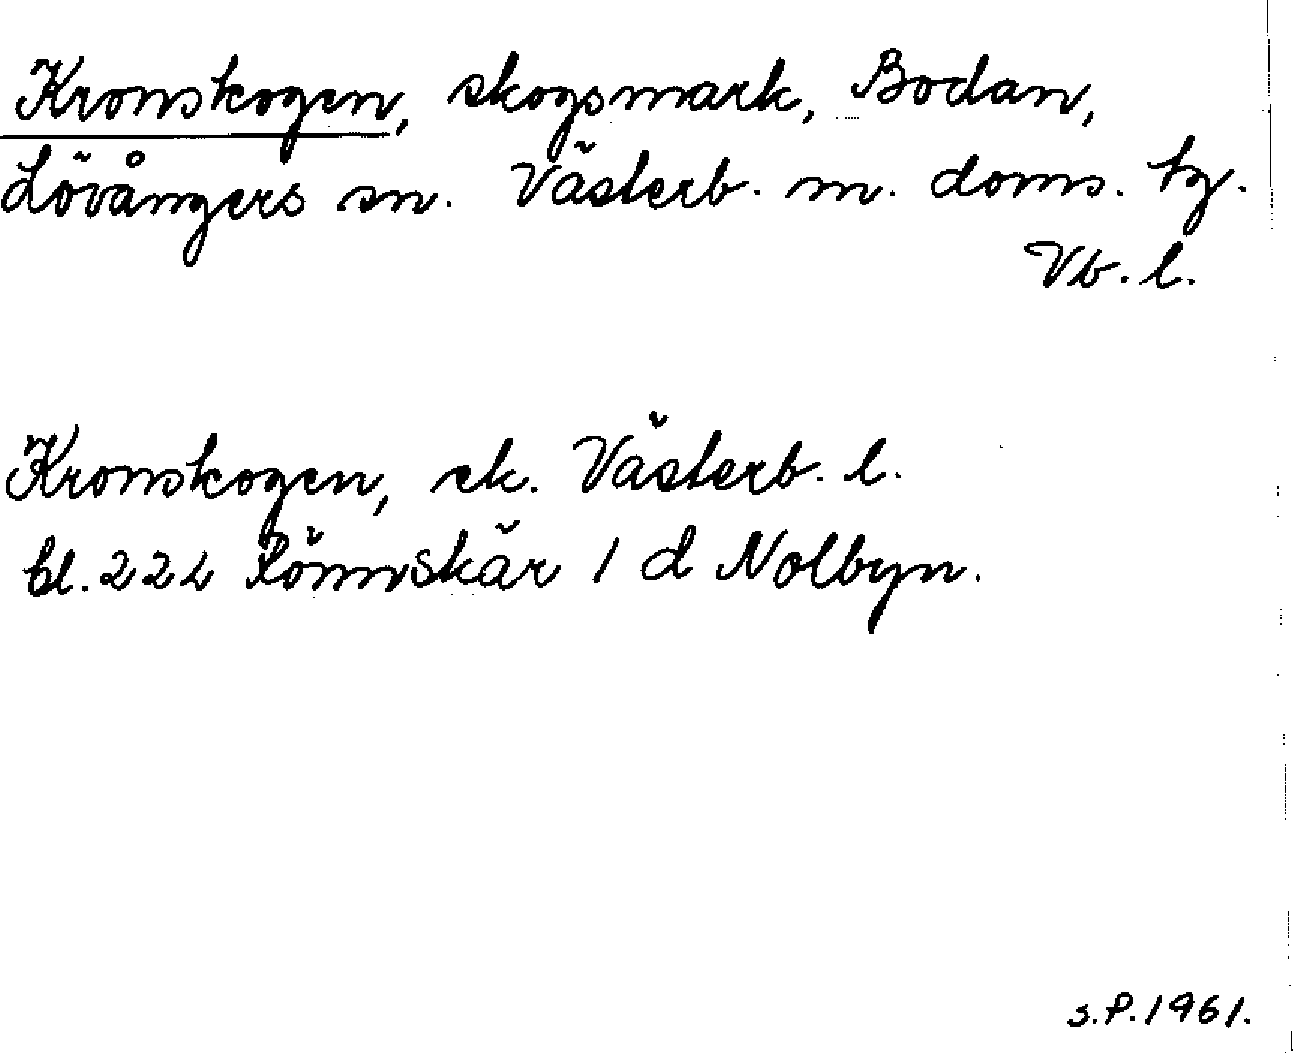 Kronskogen, skogsmark, Bodan,
Lövångers sn. Västerb. m. doms. tg.
Vb. l.
Kronskogen, ek. Västerb. l.
bl. 222 Rönnskär 1 d Nolbyn.
s.P. 1961.